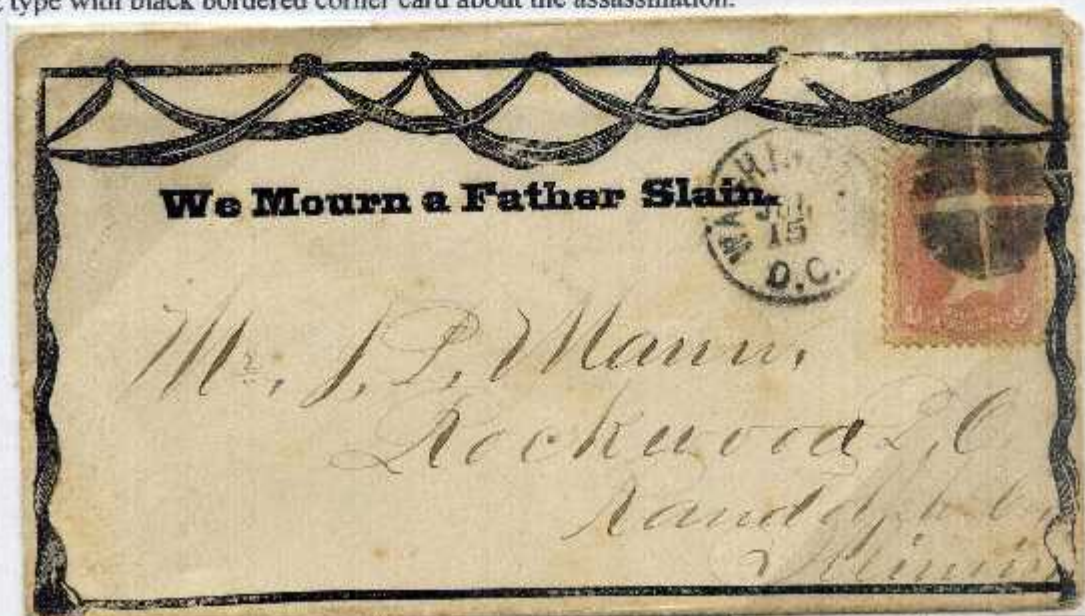 type with black bordered corner card about the assassination.
We Mourn a Father Slain.
WASHING
JUL
15
D.C.
Mr. J. P. Mann,
Rockwood P. O
Randolph Co,
Illinois